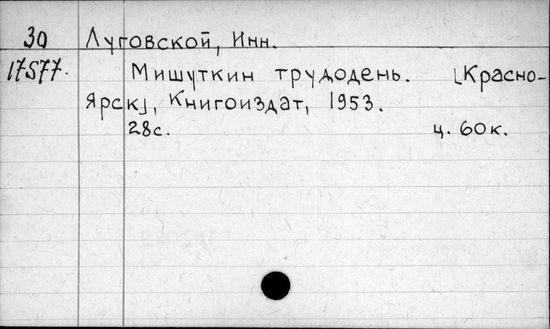 30 Луговской, Инн.
17577. Мишуткин трудодень. [Красно-
ярск], Книгоиздат, 1953.
28с. ц. 60к.